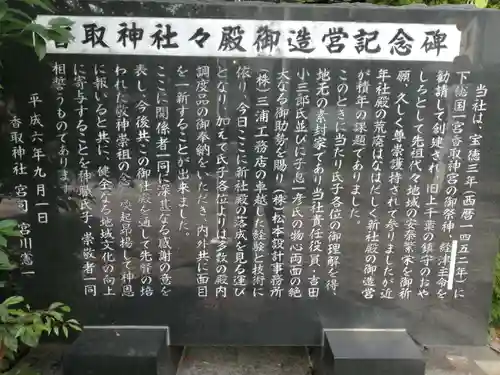 香取神社々殿御造営記念碑
当社は、宝徳三年(西暦一四五二年)に
下総国一宮香取神宮の御祭神・経津主命を
勧請して創建され、旧上千葉の鎮守のおや
しろとして先祖代々地域の安泰繁栄を御祈
願、久しく尊崇護持されて参りましたが近
年社殿の荒廃はなはだしく新社殿の御造営
が積年の課題でありました。
このときに当たり氏子各位の御理解を得、
地元の素封家であり当社責任役員・吉田
小三郎氏並びに子息一彦氏の物心両面の絶
大なる御助勢を賜り(株)松本設計事務所
(株)三浦工務店の卓越した経験と技術に
依り、今日ここに新社殿の落成を見る運び
となり、加えて氏子各位よりは多数の殿内
調度品の御奉納をいただき、内外共に面目
を一新することが出来ました。
ここに関係者一同に深甚なる感謝の意を
表し、今後共この御社殿を通して先賢の培
われた敬神崇祖の念を喚起昂揚して神恩
に報いると共に、健全なる地域文化の向上
に寄与することを祈念し氏子、崇敬者一同
相誓うものであります。
平成六年九月一日
香取神社 宮司 宮川憲一